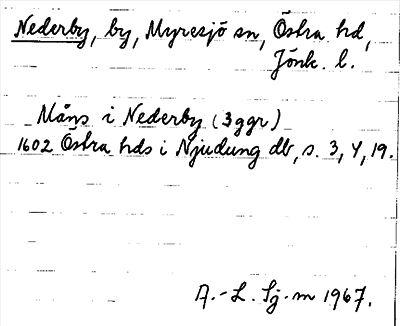 Nederby, by, Myresjö sn, Östra hd,
Jönk. l.
Måns i Nederby (3 ggr)
1602 Östra hds i Njudung db, s. 3, 4, 19.
A.-L. Sj-m 1967.